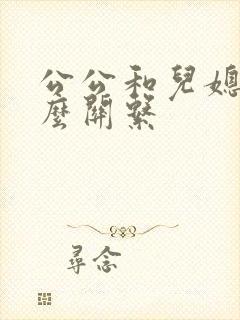 公公和兒媳
麼關繫
尋念